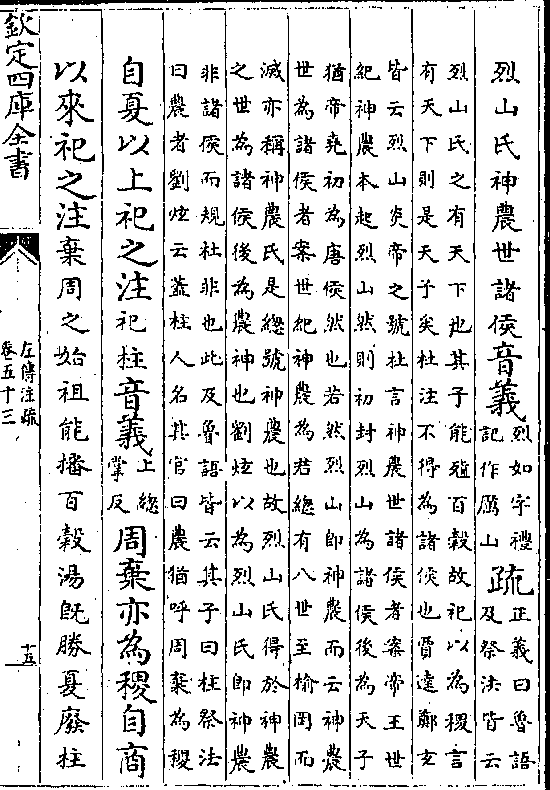 烈山氏神農世諸侯音義烈如字禮記作厲山疏正義曰魯語及祭法皆云
烈山氏之有天下也其子能殖百穀故祀以為稷言
有天下則是天子矣杜注不得為諸侯也賈逵鄭玄
皆云烈山炎帝之號杜言神農世諸侯者案帝王世
紀神農本起烈山然則初封烈山為諸侯後為天子
猶帝堯初為唐侯然也若然烈山即神農而云神農
世為諸侯者案世紀神農為君總有八世至榆罔而
滅亦稱神農氏是總號神農也故烈山氏得於神農
之世為諸侯後為農神也劉炫以為烈山氏即神農
非諸侯而規社非也此及魯語皆云其子曰柱祭法
曰農者劉炫云蓋柱人名其官曰農猶呼周棄為稷
自夏以上祀之注祀柱音義上總掌反周棄亦為稷自商
以來祀之注棄周之始祖能播百穀湯既勝夏廢柱
欽定四庫全書
左傳注疏
卷五十三
十五